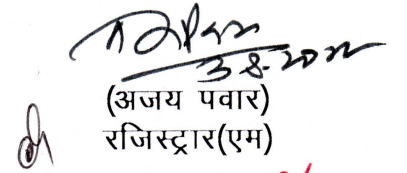 3-8-2022
(अजय पवार)
रजिस्ट्रार(एम)